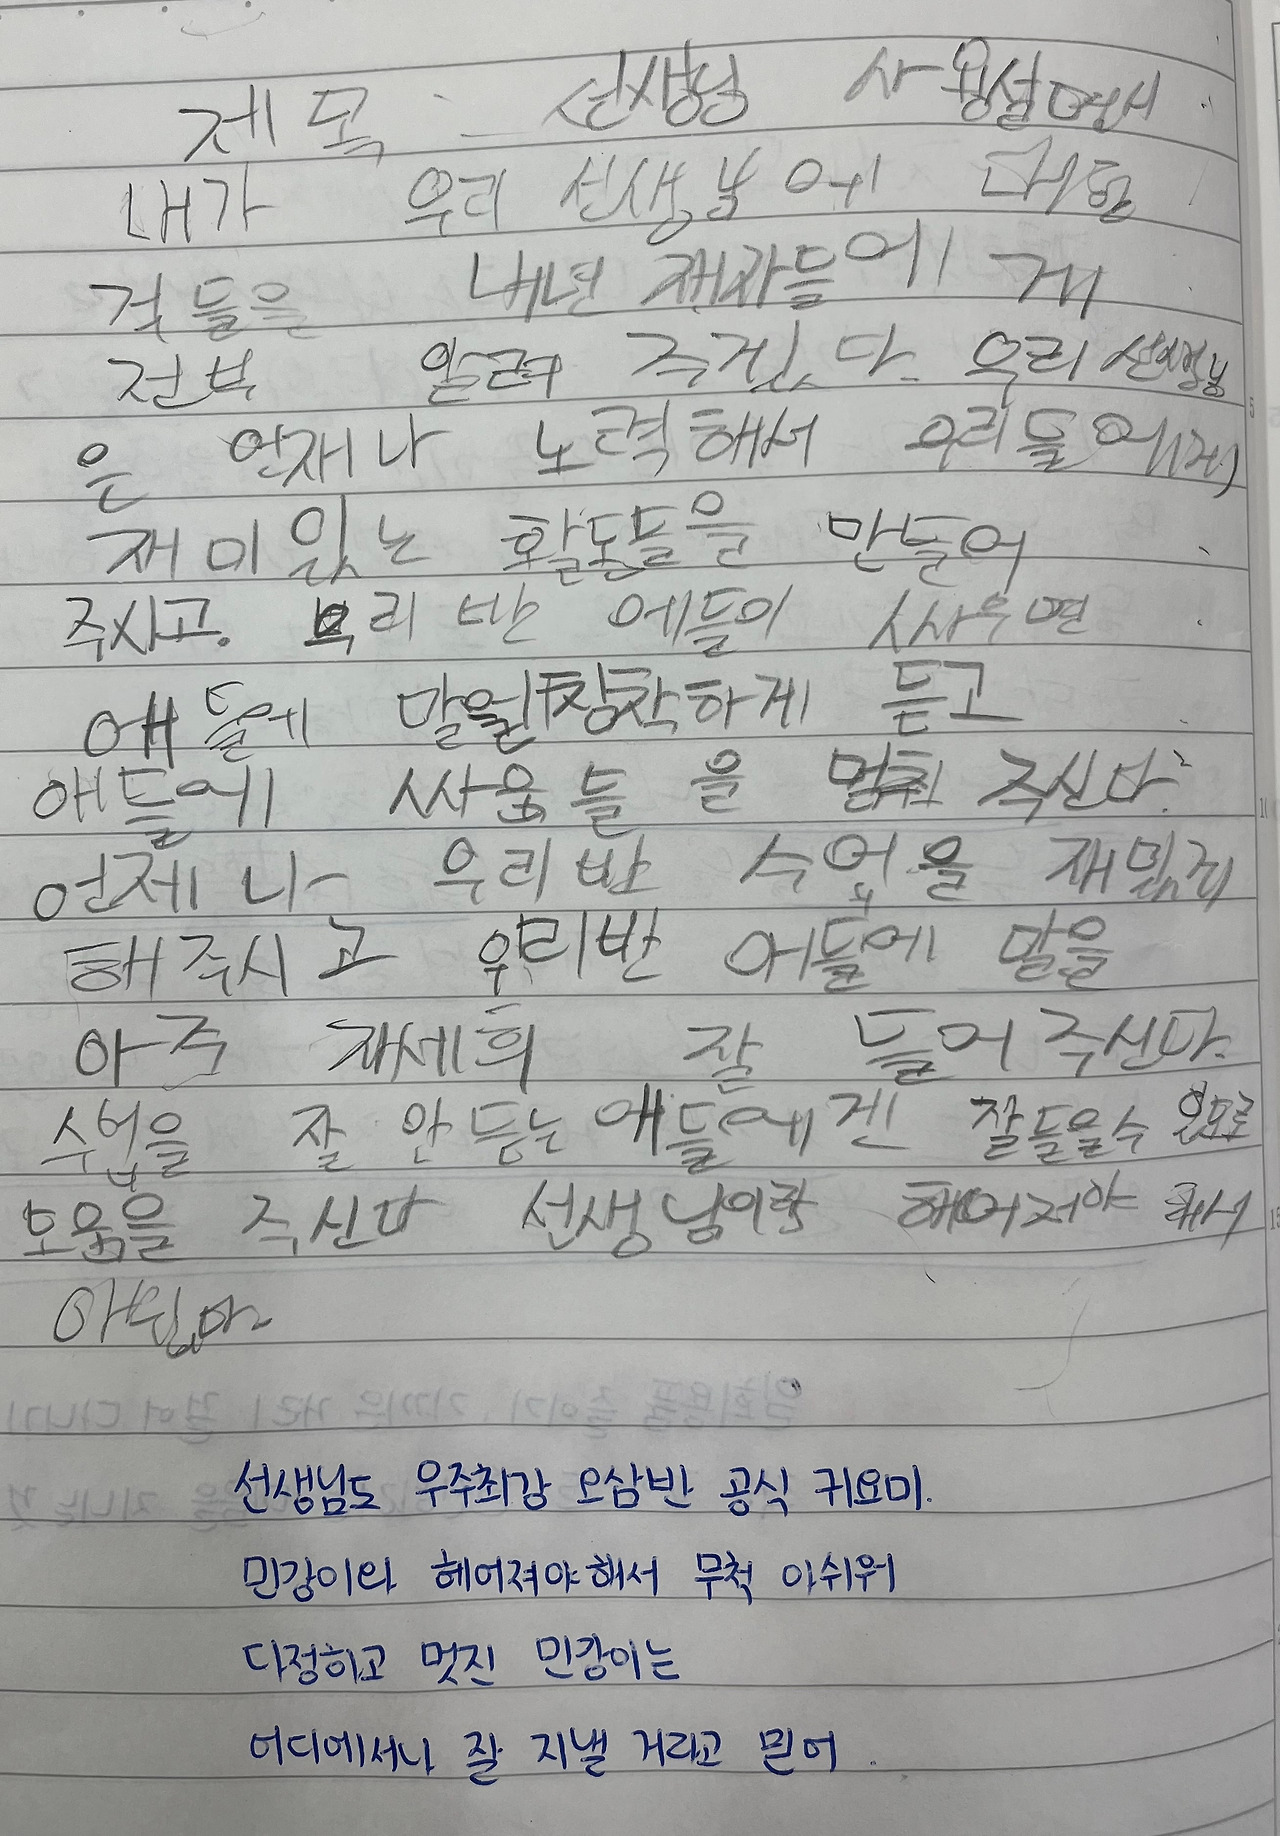 제목 : 선생님 사용설명서
내가 우리 선생님에 대한
것들을 내년 재자들에게
전부 알려 주겠다. 우리 선생님
은 언재나 노력해서 우리들에게
재미있는 활동들을 만들어
주시고. 우리 반 애들이 싸우면
애들에 말을 침착하게 듣고
애들에 싸움들을 멈춰 주신다.
언제나 우리반 수업을 재밌게
해주시고 우리반 애들에 말을
아주 자세희 잘 들어주신다.
수업을 잘 안 듣는 애들에겐 잘들을수 있도록
도움을 주신다 선생님이랑 헤어저야 해서
아쉽다.
선생님도 우주최강 오삼반 공식 귀요미.
민강이와 헤어져야해서 무척 아쉬워
다정하고 멋진 민강이는
어디에서나 잘 지낼 거라고 믿어.